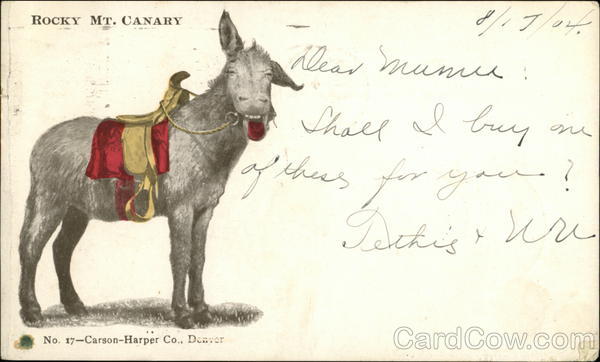 ROCKY MT. CANARY
8/17/04.
Dear Mumie:
Shall I buy one
of these for you?
&
No. 17—Carson-Harper Co., Denver
CardCow.com